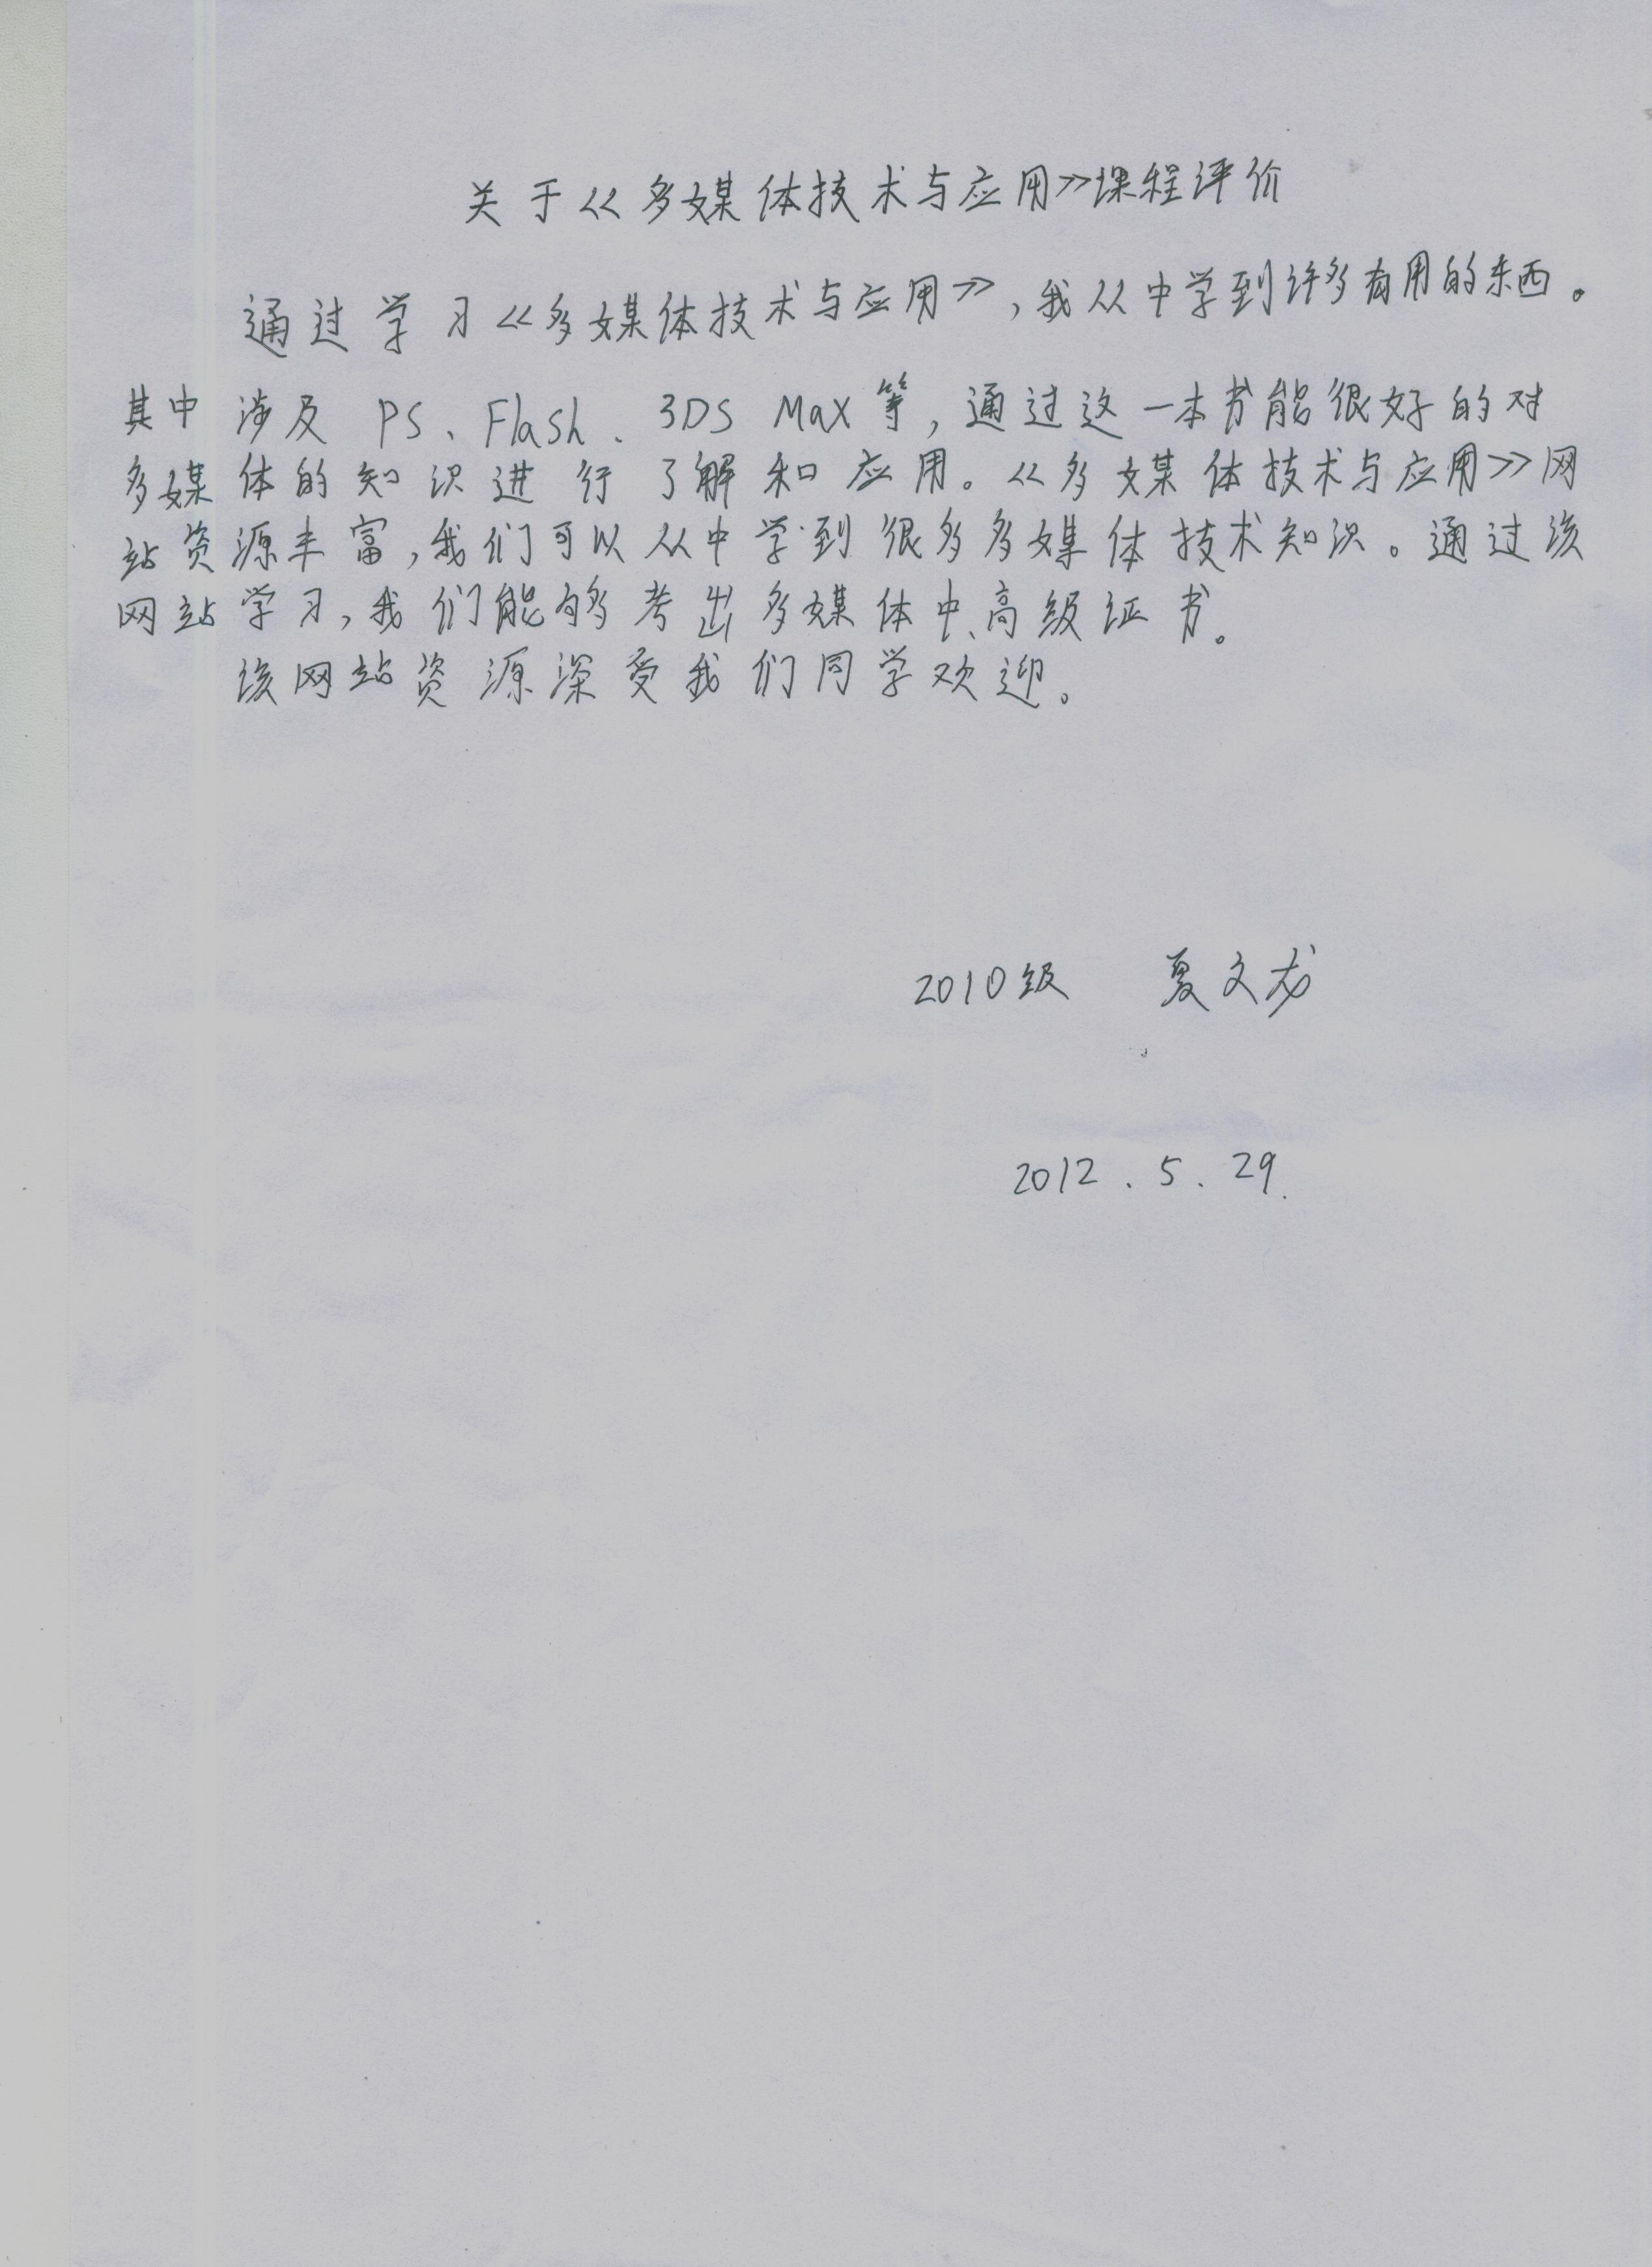 关于《多媒体技术与应用》课程评价
通过学习《多媒体技术与应用》,我从中学到许多有用的东西。
其中涉及PS、Flash、3DS Max等,通过这一本书能很好的对
多媒体的知识进行了解和应用。《多媒体技术与应用》网
站资源丰富,我们可以从中学到很多多媒体技术知识。通过该
网站学习,我们能够考出多媒体中、高级证书。
该网站资源深受我们同学欢迎。
2010级 夏文龙
2012.5.29.